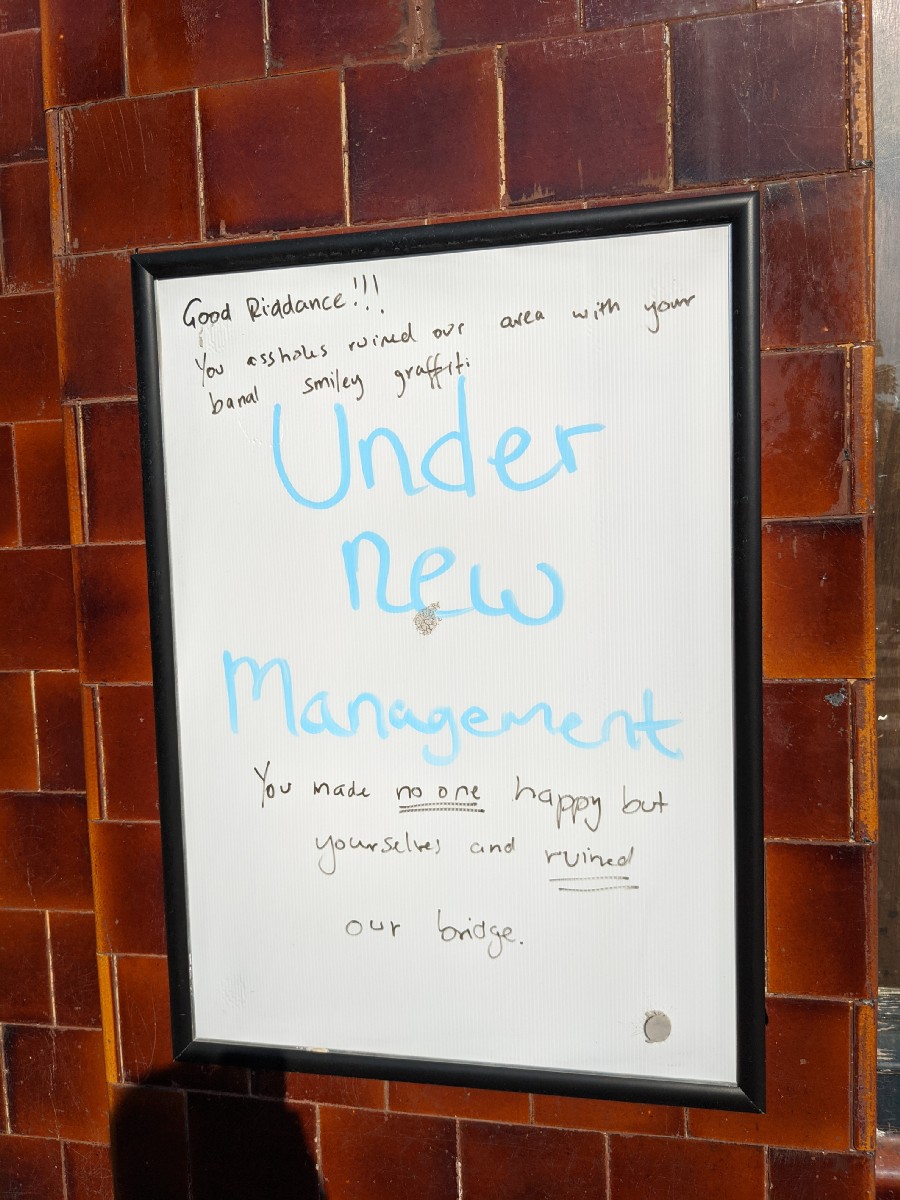 Good Riddance!!!
You assholes ruined our area with your
banal smiley graffiti
Under
new
Management
You made no one happy but
yourselves and ruined
our bridge.